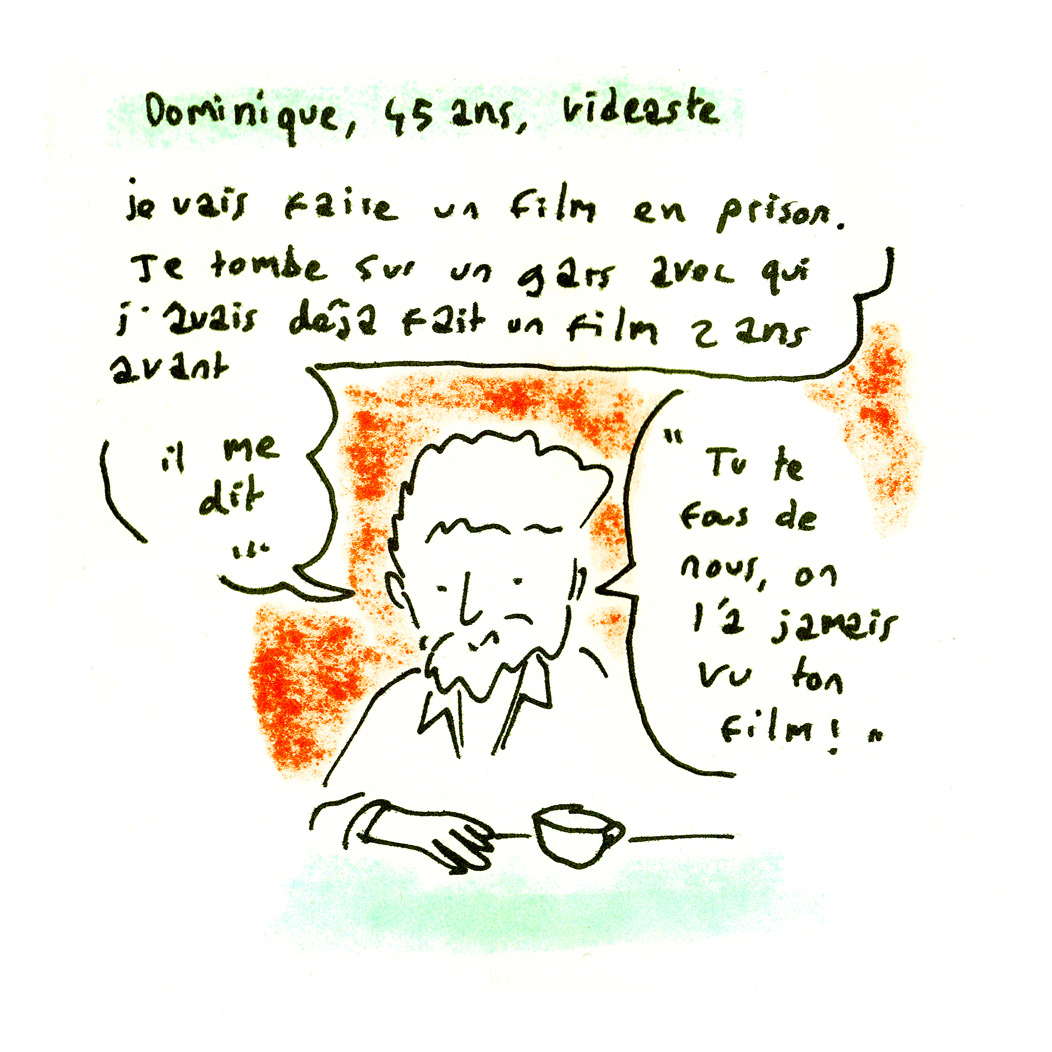 Dominique, 45 ans, videaste
je vais faire un film en prison.
Je tombe sur un gars avec qui
j'avais déjà fait un film 2 ans
avant
il me
dit
...
"Tu te
fous de
nous, on
l'a jamais
vu ton
film! "